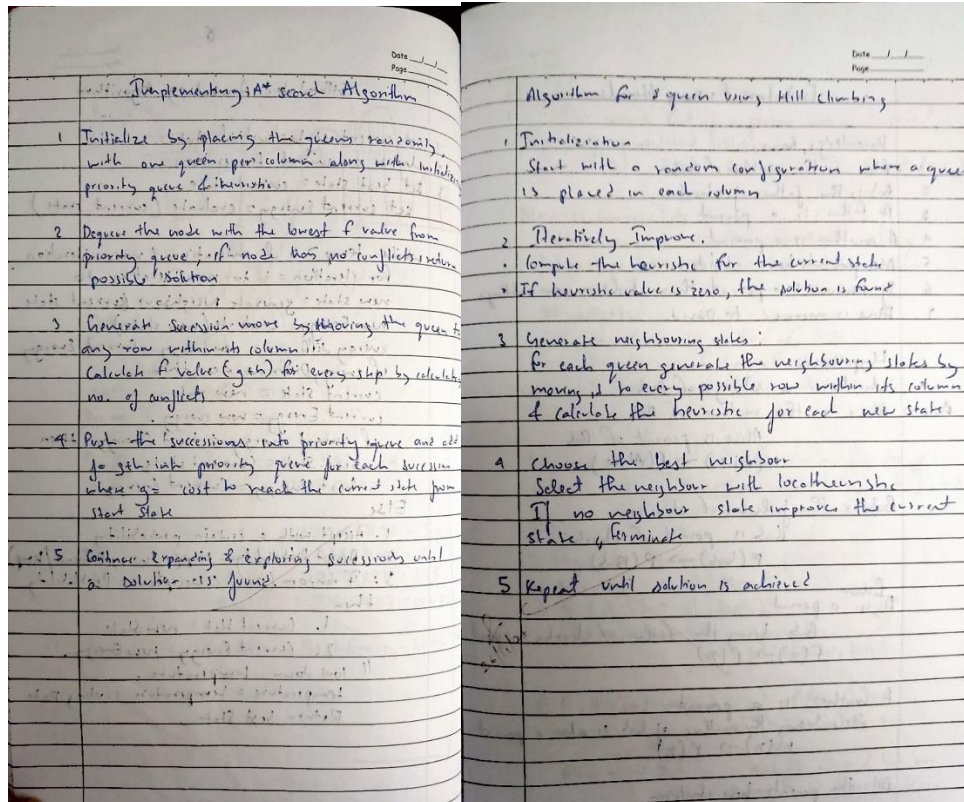 Date __/__/__
Page
Implementing : A* search Algorithm
1 Initialize by placing the queens randomly
with one queen per column along with initialize
priority queue & heuristic
2 Dequeue the node with the lowest f value from
priority queue, if node has no conflicts return
possible solution
3 Generate sucession move by moving the queen to
any row within its column
Calculate f value (g+h) for every step by calculating
no. of conflicts
4 Push the successions into priority queue and add
f = g+h into priority queue for each sucession
where g = cost to reach the current state from
start state
5 Continue Expanding & exploring sucessions until
a solution is found
Date __/__/__
Page
Algorithm for 8 queen using Hill climbing
1 Initialization
Start with a random configuration where a queen
is placed in each column
2 Iteratively Improve.
• Compute the heuristic for the current state
• If heuristic value is zero, the solution is found
3 Generate neighbouring states :
for each queen generate the neighbouring states by
moving it to every possible row within its column
& calculate the heuristic for each new state
4 Choose the best neighbour
Select the neighbour with
If no neighbour state improves the current
state, terminate
5 Repeat until solution is achieved